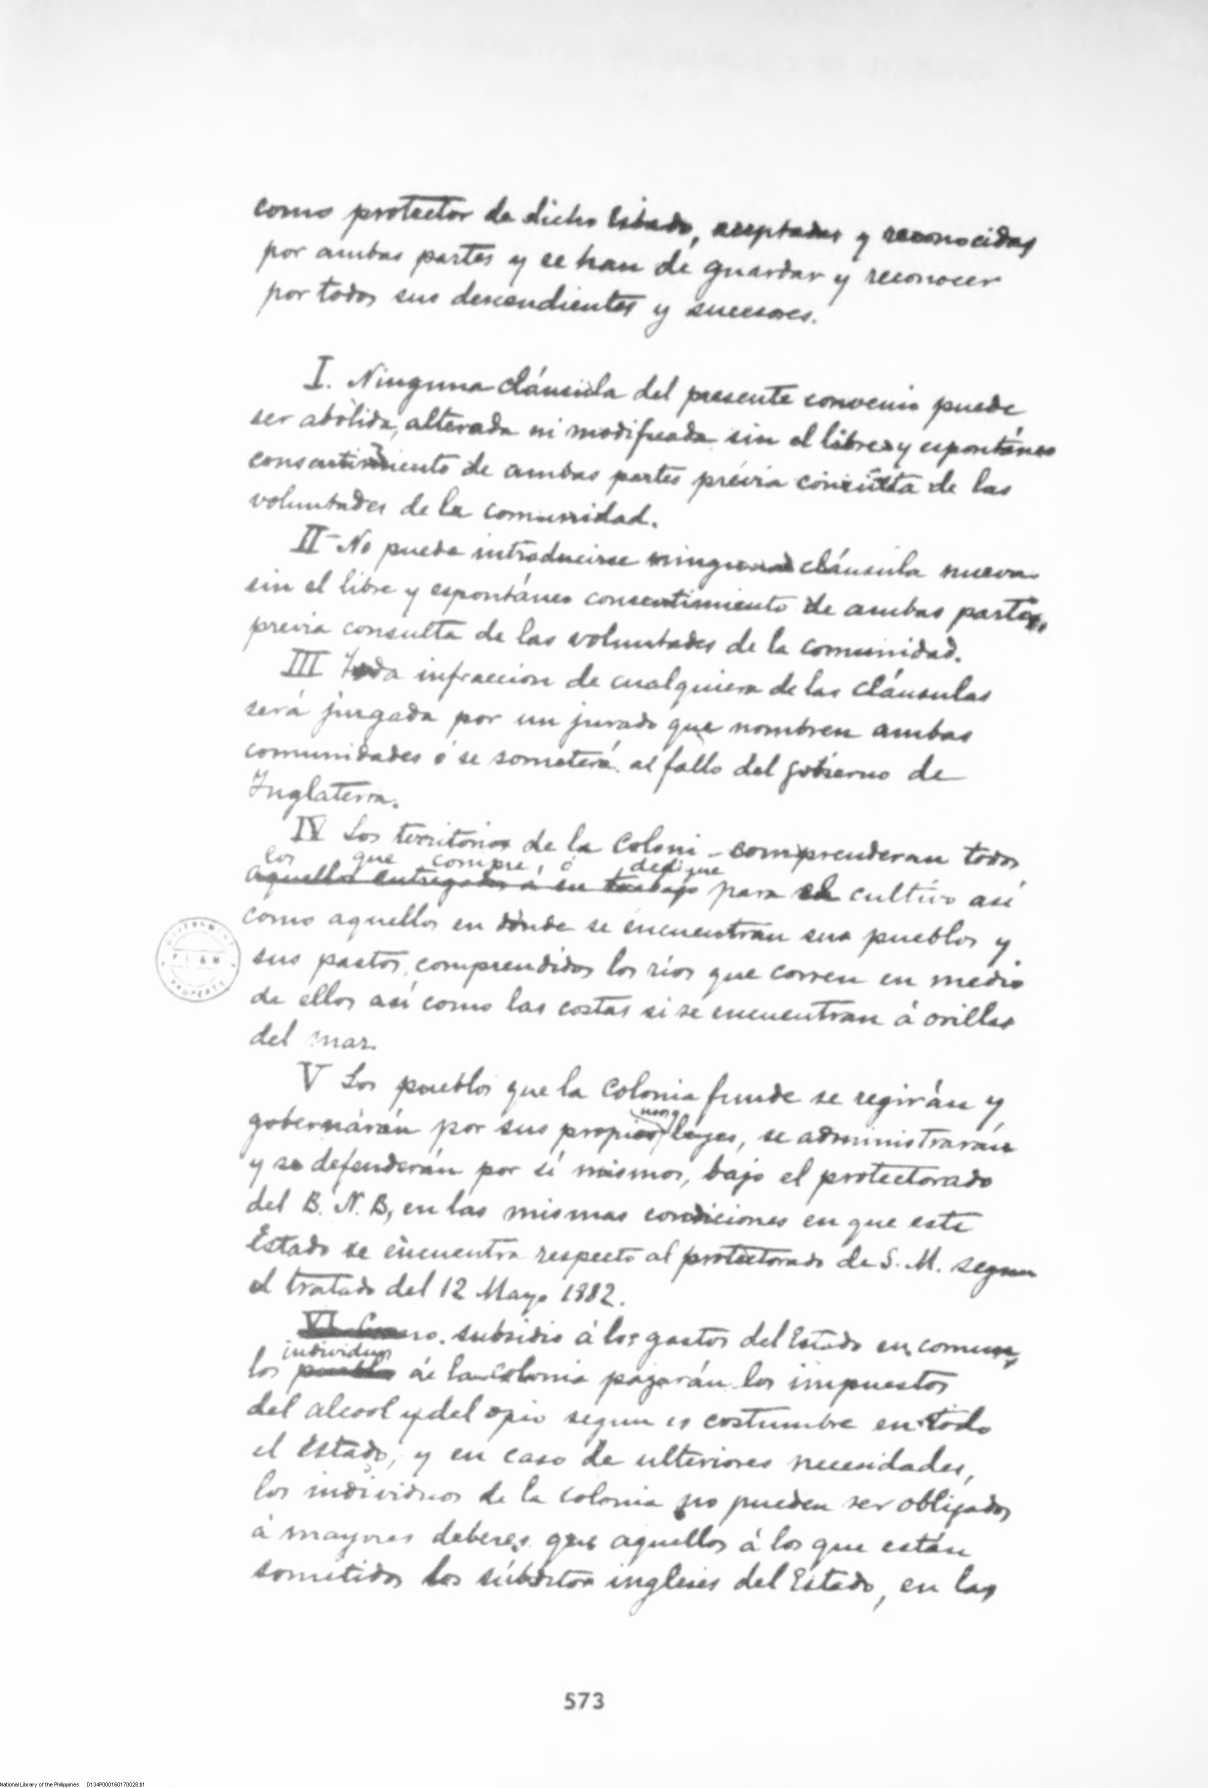 como protector de dicho Estado, aceptadas y reconocidas
por ambas partes y se han de guardar y reconocer
por todos sus descendientes y sucesores.
I. Ninguna cláusula del presente convenio puede
ser abolida, alterada ni modificada sin el libre y espontáneo
consentimiento de ambas partes prévia consulta de las
voluntades de la comunidad.
II - No puede introducirse ninguna cláusula nueva
sin el libre y espontáneo consentimiento de ambas partes,
previa consulta de las voluntades de la comunidad.
III Toda infraccion de cualquiera de las cláusulas
será juzgada por un jurado que nombren ambas
comunidades ó se someterá al fallo del gobierno de
Inglaterra.
IV Los territorios de la Coloni - comprenderan todos
los que compre, ó dedique
aquellos entregados a su trabajo para el cultivo así
como aquellos en donde se encuentran sus pueblos y
sus pastos, comprendidos los ríos que corren en medio
de ellos así como las costas si se encuentran á orillas
del mar.
V Los pueblos que la Colonia funde se regirán y
gobernárán por sus propias leyes, se administrarán
y se defenderán por sí mismos, bajo el protectorado
del B. N. B, en las mismas condiciones en que este
Estado se encuentra respecto al protectorado de S. M. segun
el tratado del 12 Mayo 1882.
VI Como subsidio á los gastos del Estado en comun,
individuos
los pueblos de la colonia pagarán los impuestos
del alcool y del opio segun es costumbre en todo
el Estado, y en caso de ulteriores necesidades,
los individuos de la colonia no pueden ser obligados
á mayores deberes que aquellos á los que están
sometidos los súbditos ingleses del Estado, en las
GOVERNMENT
P. I.
PROPERTY
573
National Library of the Philippines D134P000160170028.tif